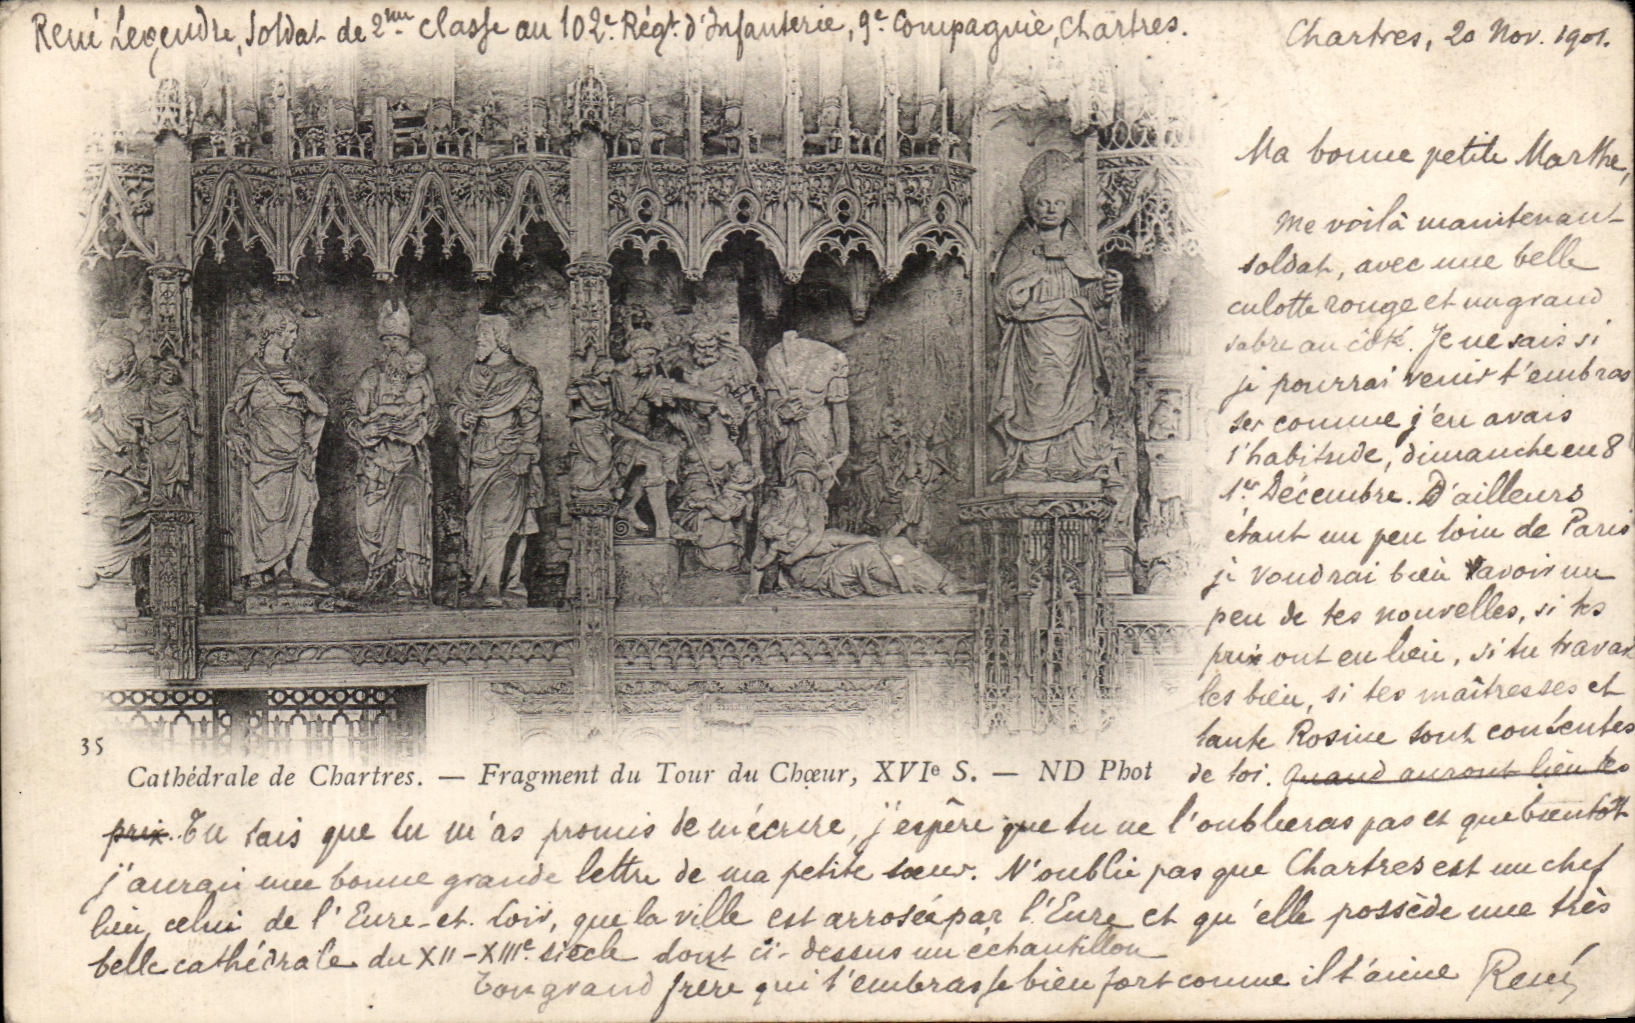 René Legendre, soldat de 2me classe au 102e Régt. d'Infanterie, 9e Compagnie, Chartres.
Chartres, 20 Nov. 1901.
Ma bonne petite Marthe,
Me voilà maintenant
soldat, avec une belle
culotte rouge et un grand
sabre au côté. Je ne sais si
je pourrai venir t'embras
ser comme j'en avais
l'habitude, dimanche en 8
1er Décembre. D'ailleurs
étant un peu loin de Paris
je voudrai bien savoir un
peu de tes nouvelles, si tes
prix ont eu lieu, si tu travail
les bien, si tes maîtresses et
tante Rosine sont contentes
de toi. Quand auront lieu tes
35
Cathédrale de Chartres. — Fragment du Tour du Chœur, XVIe S. — ND Phot
prix. Tu sais que tu m'as promis de m'écrire, j'espère que tu ne l'oublieras pas et que bientôt
j'aurai une bonne grande lettre de ma petite sœur. N'oublie pas que Chartres est un chef
lieu, celui de l'Eure-et-Loir, que la ville est arrosée par l'Eure et qu'elle possède une très
belle cathédrale du XII-XIIIe siècle dont ci-dessus un échantillon
Ton grand frère qui t'embrasse bien fort comme il t'aime René